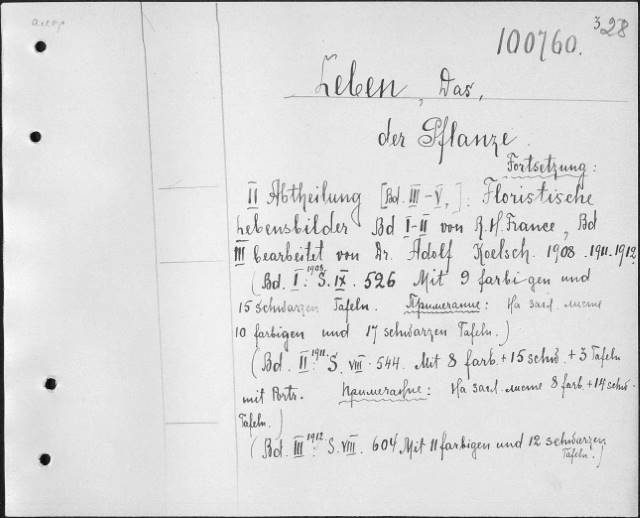 328
100760.
Leben, Das,
der Pflanze.
Fortsetzung:
II Abtheilung [Bd. III-V,]: Floristische
Lebensbilder Bd I-II von R. H. France, Bd
III bearbeitet von Dr. Adolf Koelsch. 1908-1911-1912
(Bd. I. 1908 S. IX. 526 Mit 9 farbigen und
15 schwarzen Tafeln. Примечание: На загл. листе
10 farbigen und 17 schwarzen Tafeln.)
(Bd. II. 1911 S. VIII. 544. Mit 8 farb. + 15 schw. + 3 Tafeln
mit Portr. Примечание: На загл. листе 8 farb. + 14 schw.
Tafeln.)
(Bd. III. 1912 S. VIII. 604 Mit 11 farbigen und 12 schwarzen
Tafeln.)